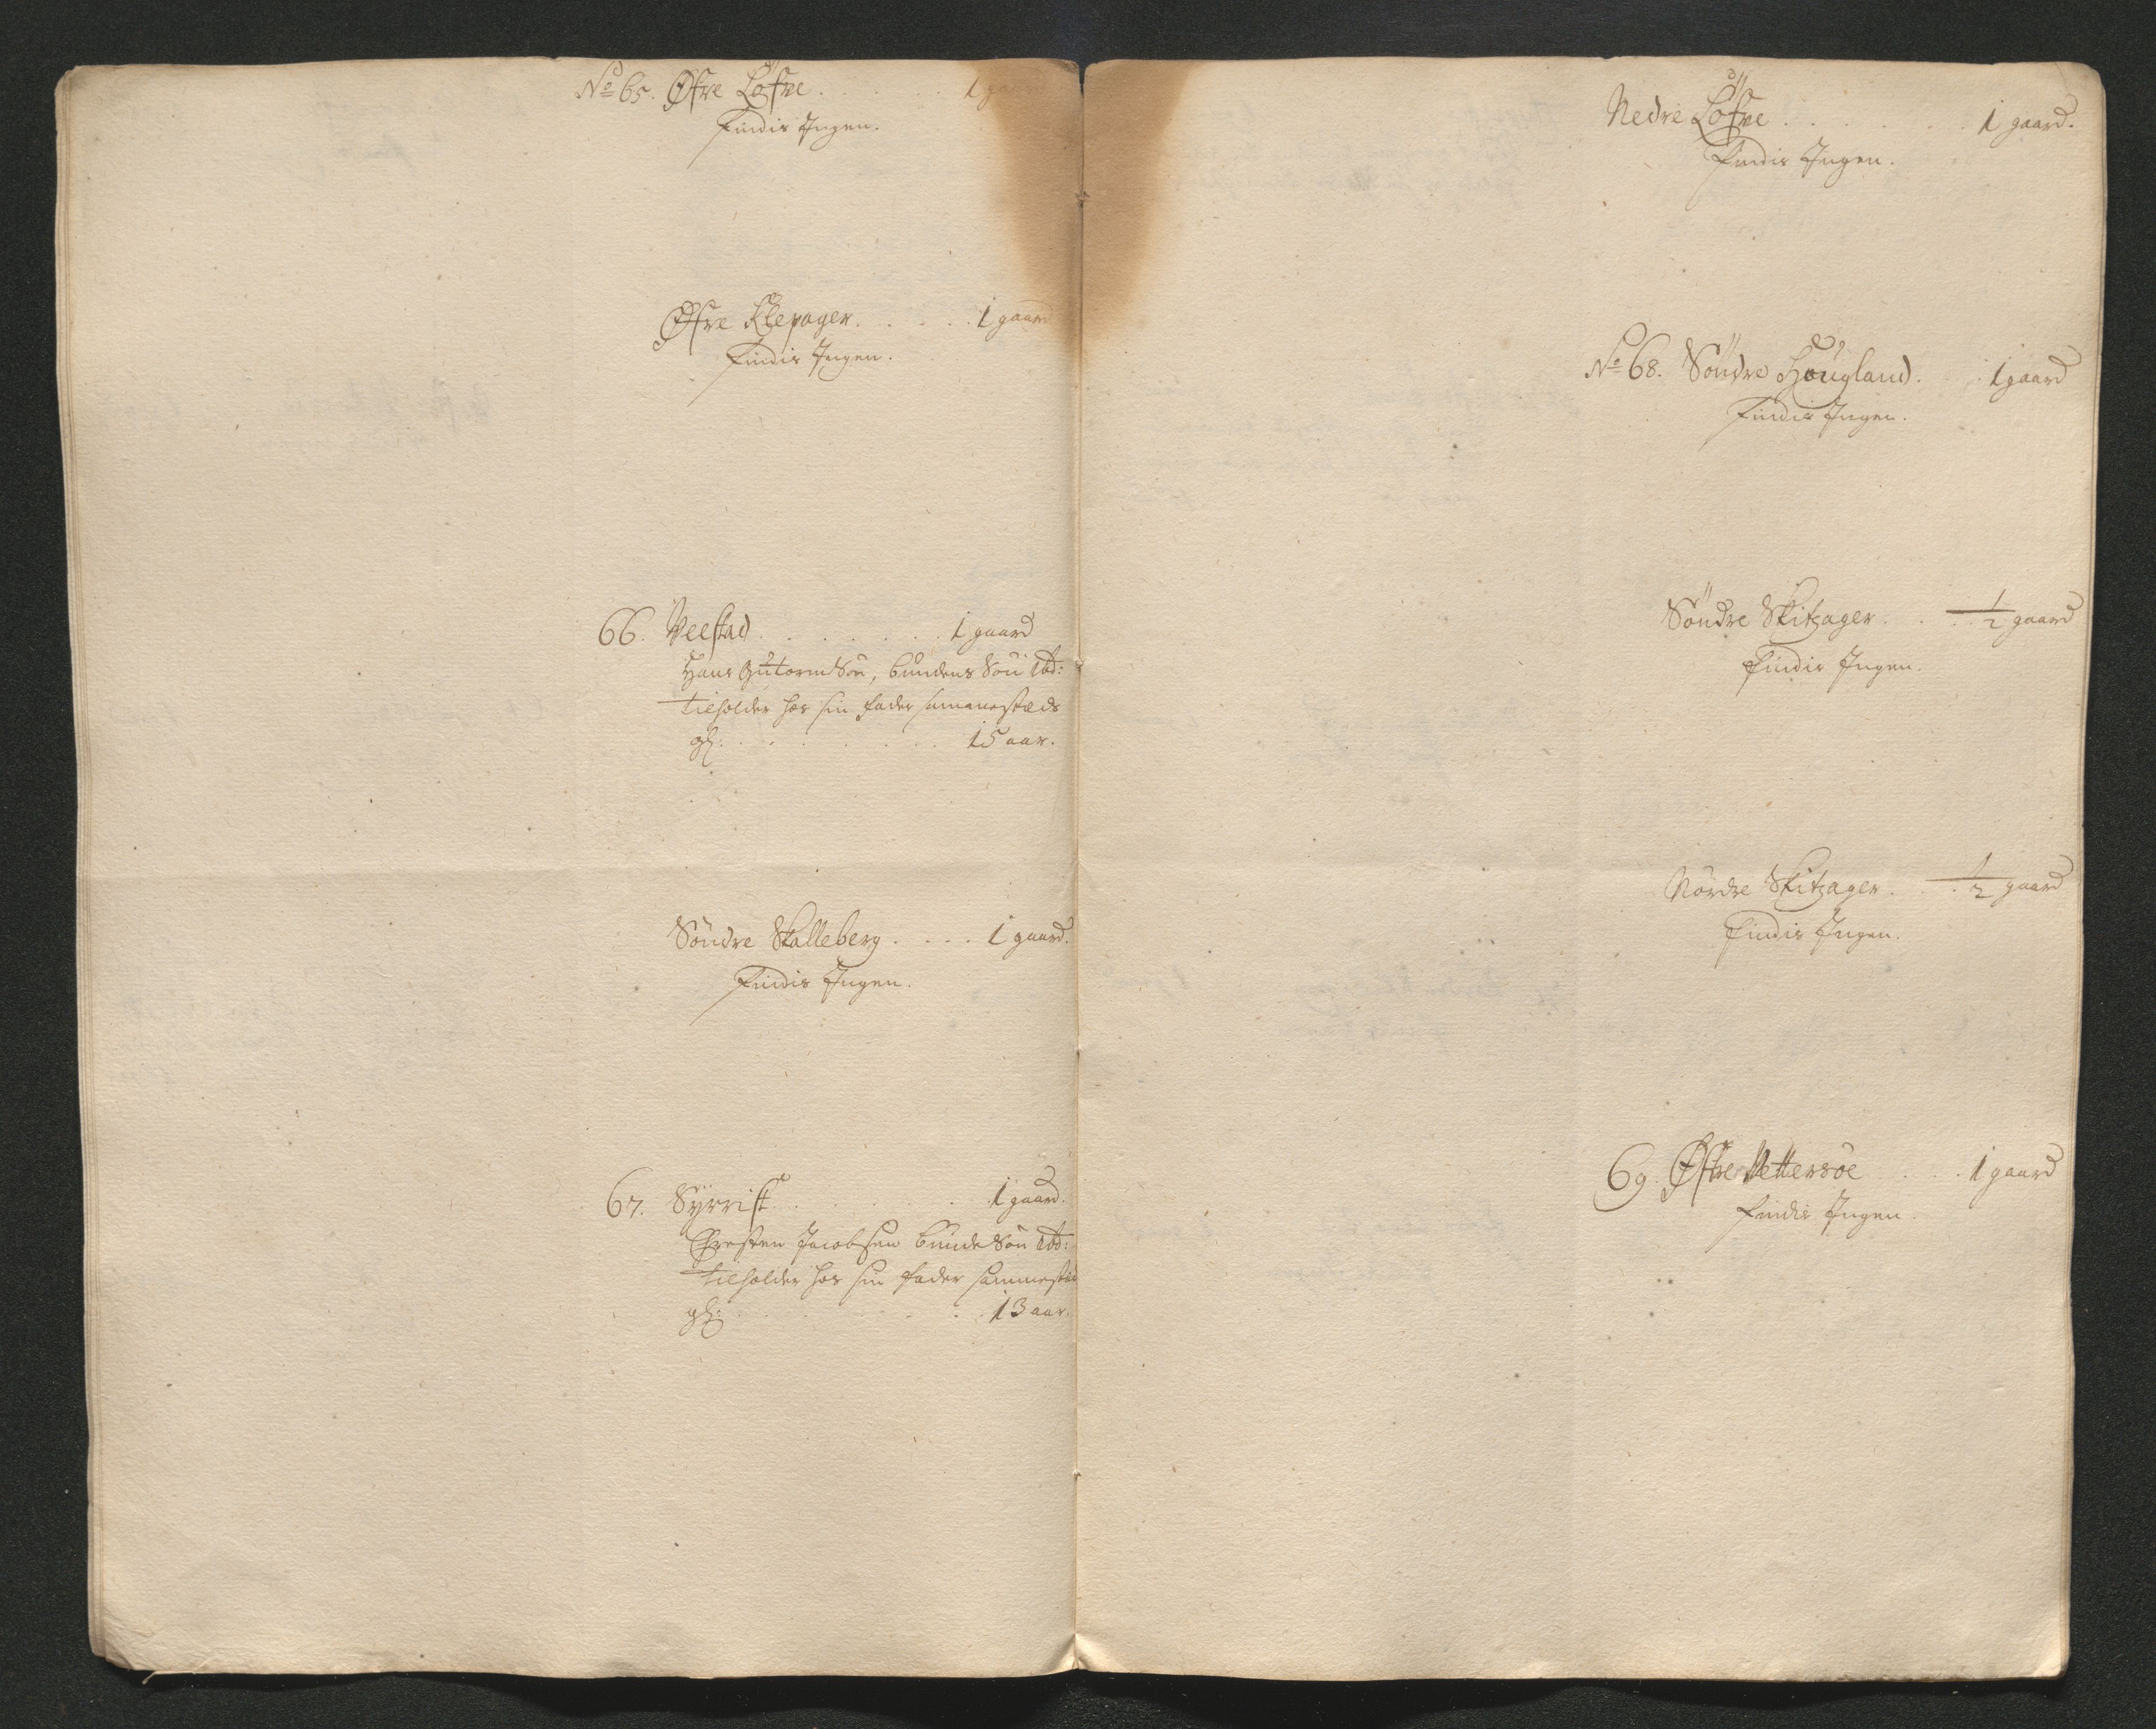 No 65. Øfre Löfve . . . . . 1 ga
Findis Ingen.
Øfre Klepager . . . . . 1 gaard
Findis Ingen.
66. Veestad . . . . . . . 1 gaard
Hans Gutormsön, bundens Sön ibd:
tilholder hos sin fader sammestæds
gl: . . . . . . . 15 aar.
Söndre Skalleberg . . . . 1 gaard.
Findis Ingen.
67. Syrrist . . . . . . 1 gaard.
Christen Jacobsen bunde Sön ibd:
tilholder hos sin fader sammestæd
gl: . . . . . . . 13 aar.
Nedre Löfve . . . . . . . 1 gaard.
Findis Ingen.
No 68. Söndre Hougland . . . 1 gaard
Findis Ingen.
Söndre Skitzager . . . 1/2 gaard
Findis Ingen.
Nordre Skitzager . . . 1/2 gaard
Findis Ingen.
69. Østre Vettersöe . . . 1 gaard
Findis Ingen.